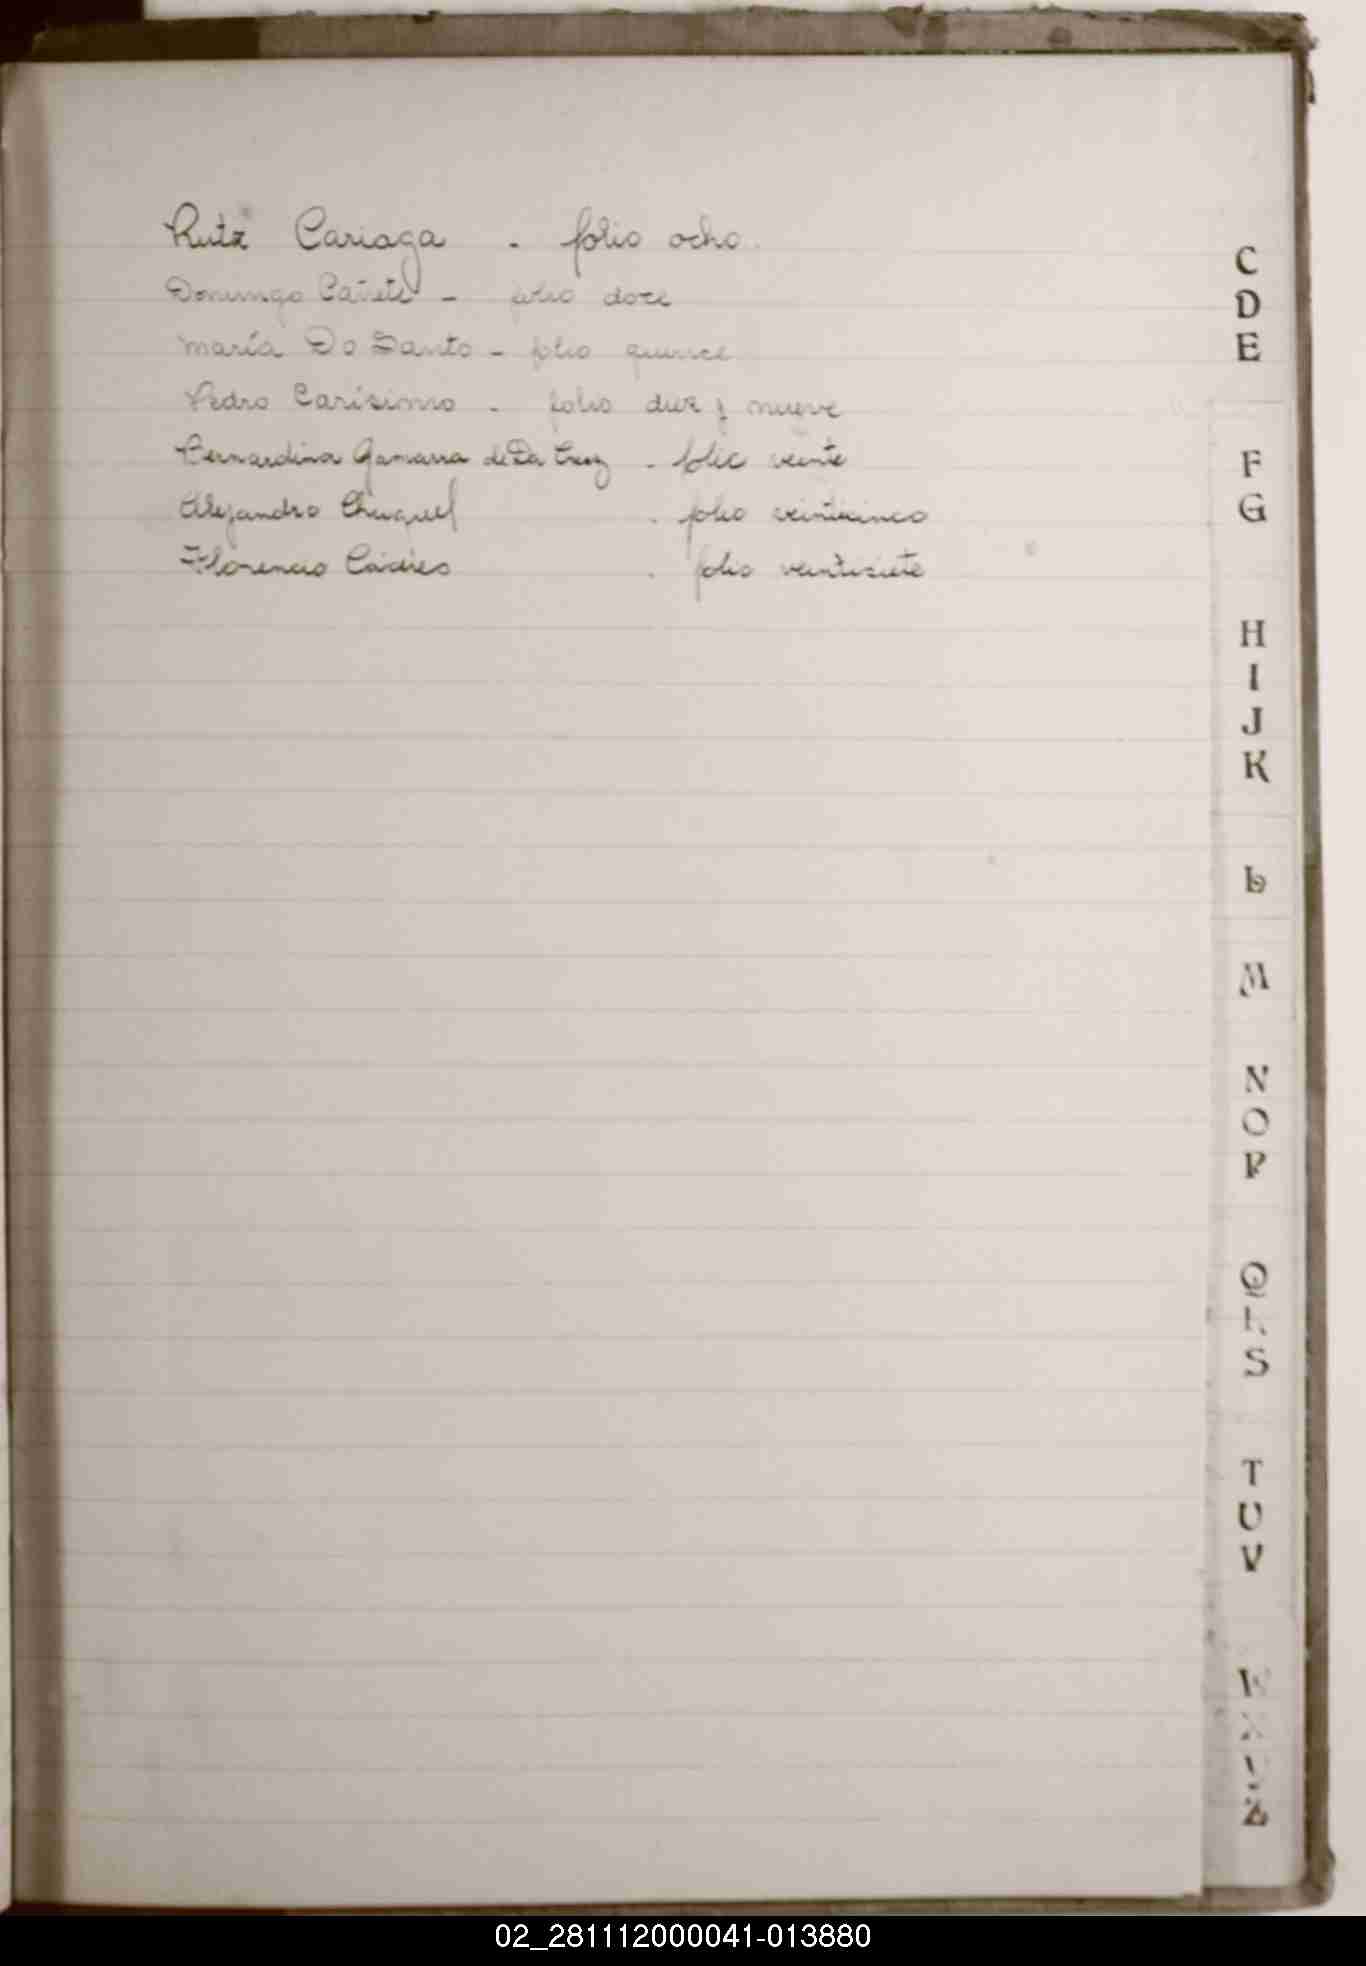 Ruta Cariaga - folio ocho.
Domingo Cañete - folio doce
María Do Santo - folio quince
Pedro Carísimo - folio diez y nueve
Bernardina Gamarra de Da Cruz - folio veinte
Alejandro Chuquel - folio veinticinco
Florencio - folio veintisiete
C
D
E
F
G
H
I
J
K
L
M
N
O
P
Q
R
S
T
U
V
W
X
Y
Z
02_281112000041-013880